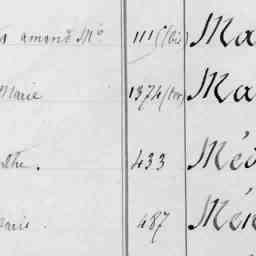 amand Mce 111 (bis) Ma
Marie 1374 (ter) Ma
the. 433 Méd
Marie. 487 Mén